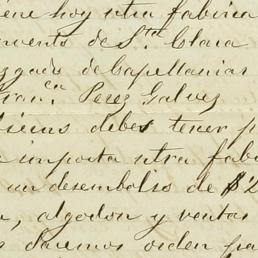 iene hoy ntra fabrica
mento de Sta Clara
zgado de Capellanias
Fran.ca Perez Galvez
diciens debes tener p
a importa ntra fab
un desembolso de $2
, algodon y ventas
s daremos orden pa